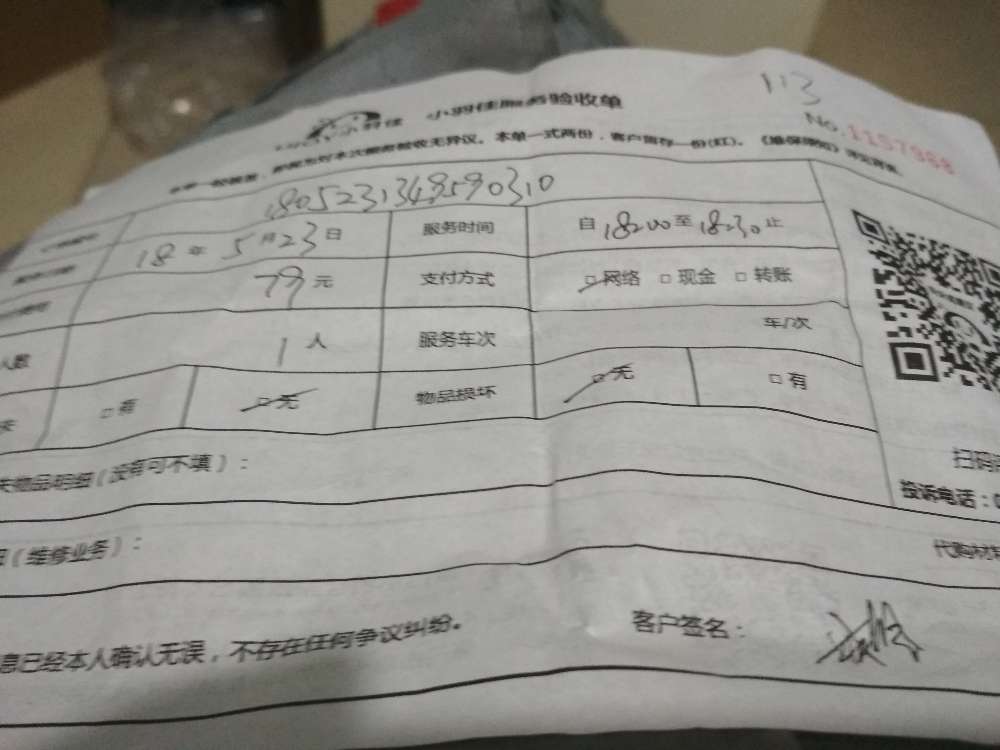 113
小羽佳 小羽佳服务验收单
No.1157988
本次服务验收无异议。本单一式两份，客户留存一份(红)。
1805231349590310
18 年 5 月 23 日 服务时间 自 18:00 至 18:30 止
79 元 支付方式 □ 网络 □ 现金 □ 转账
人数 1 人 服务车次 车/次
□ 有 □ 无 物品损坏 □ 无 □ 有
扫码
失物品明细（没有可不填）：
投诉电话：0
（维修业务）：
代购材料
息已经本人确认无误，不存在任何争议纠纷。 客户签名：